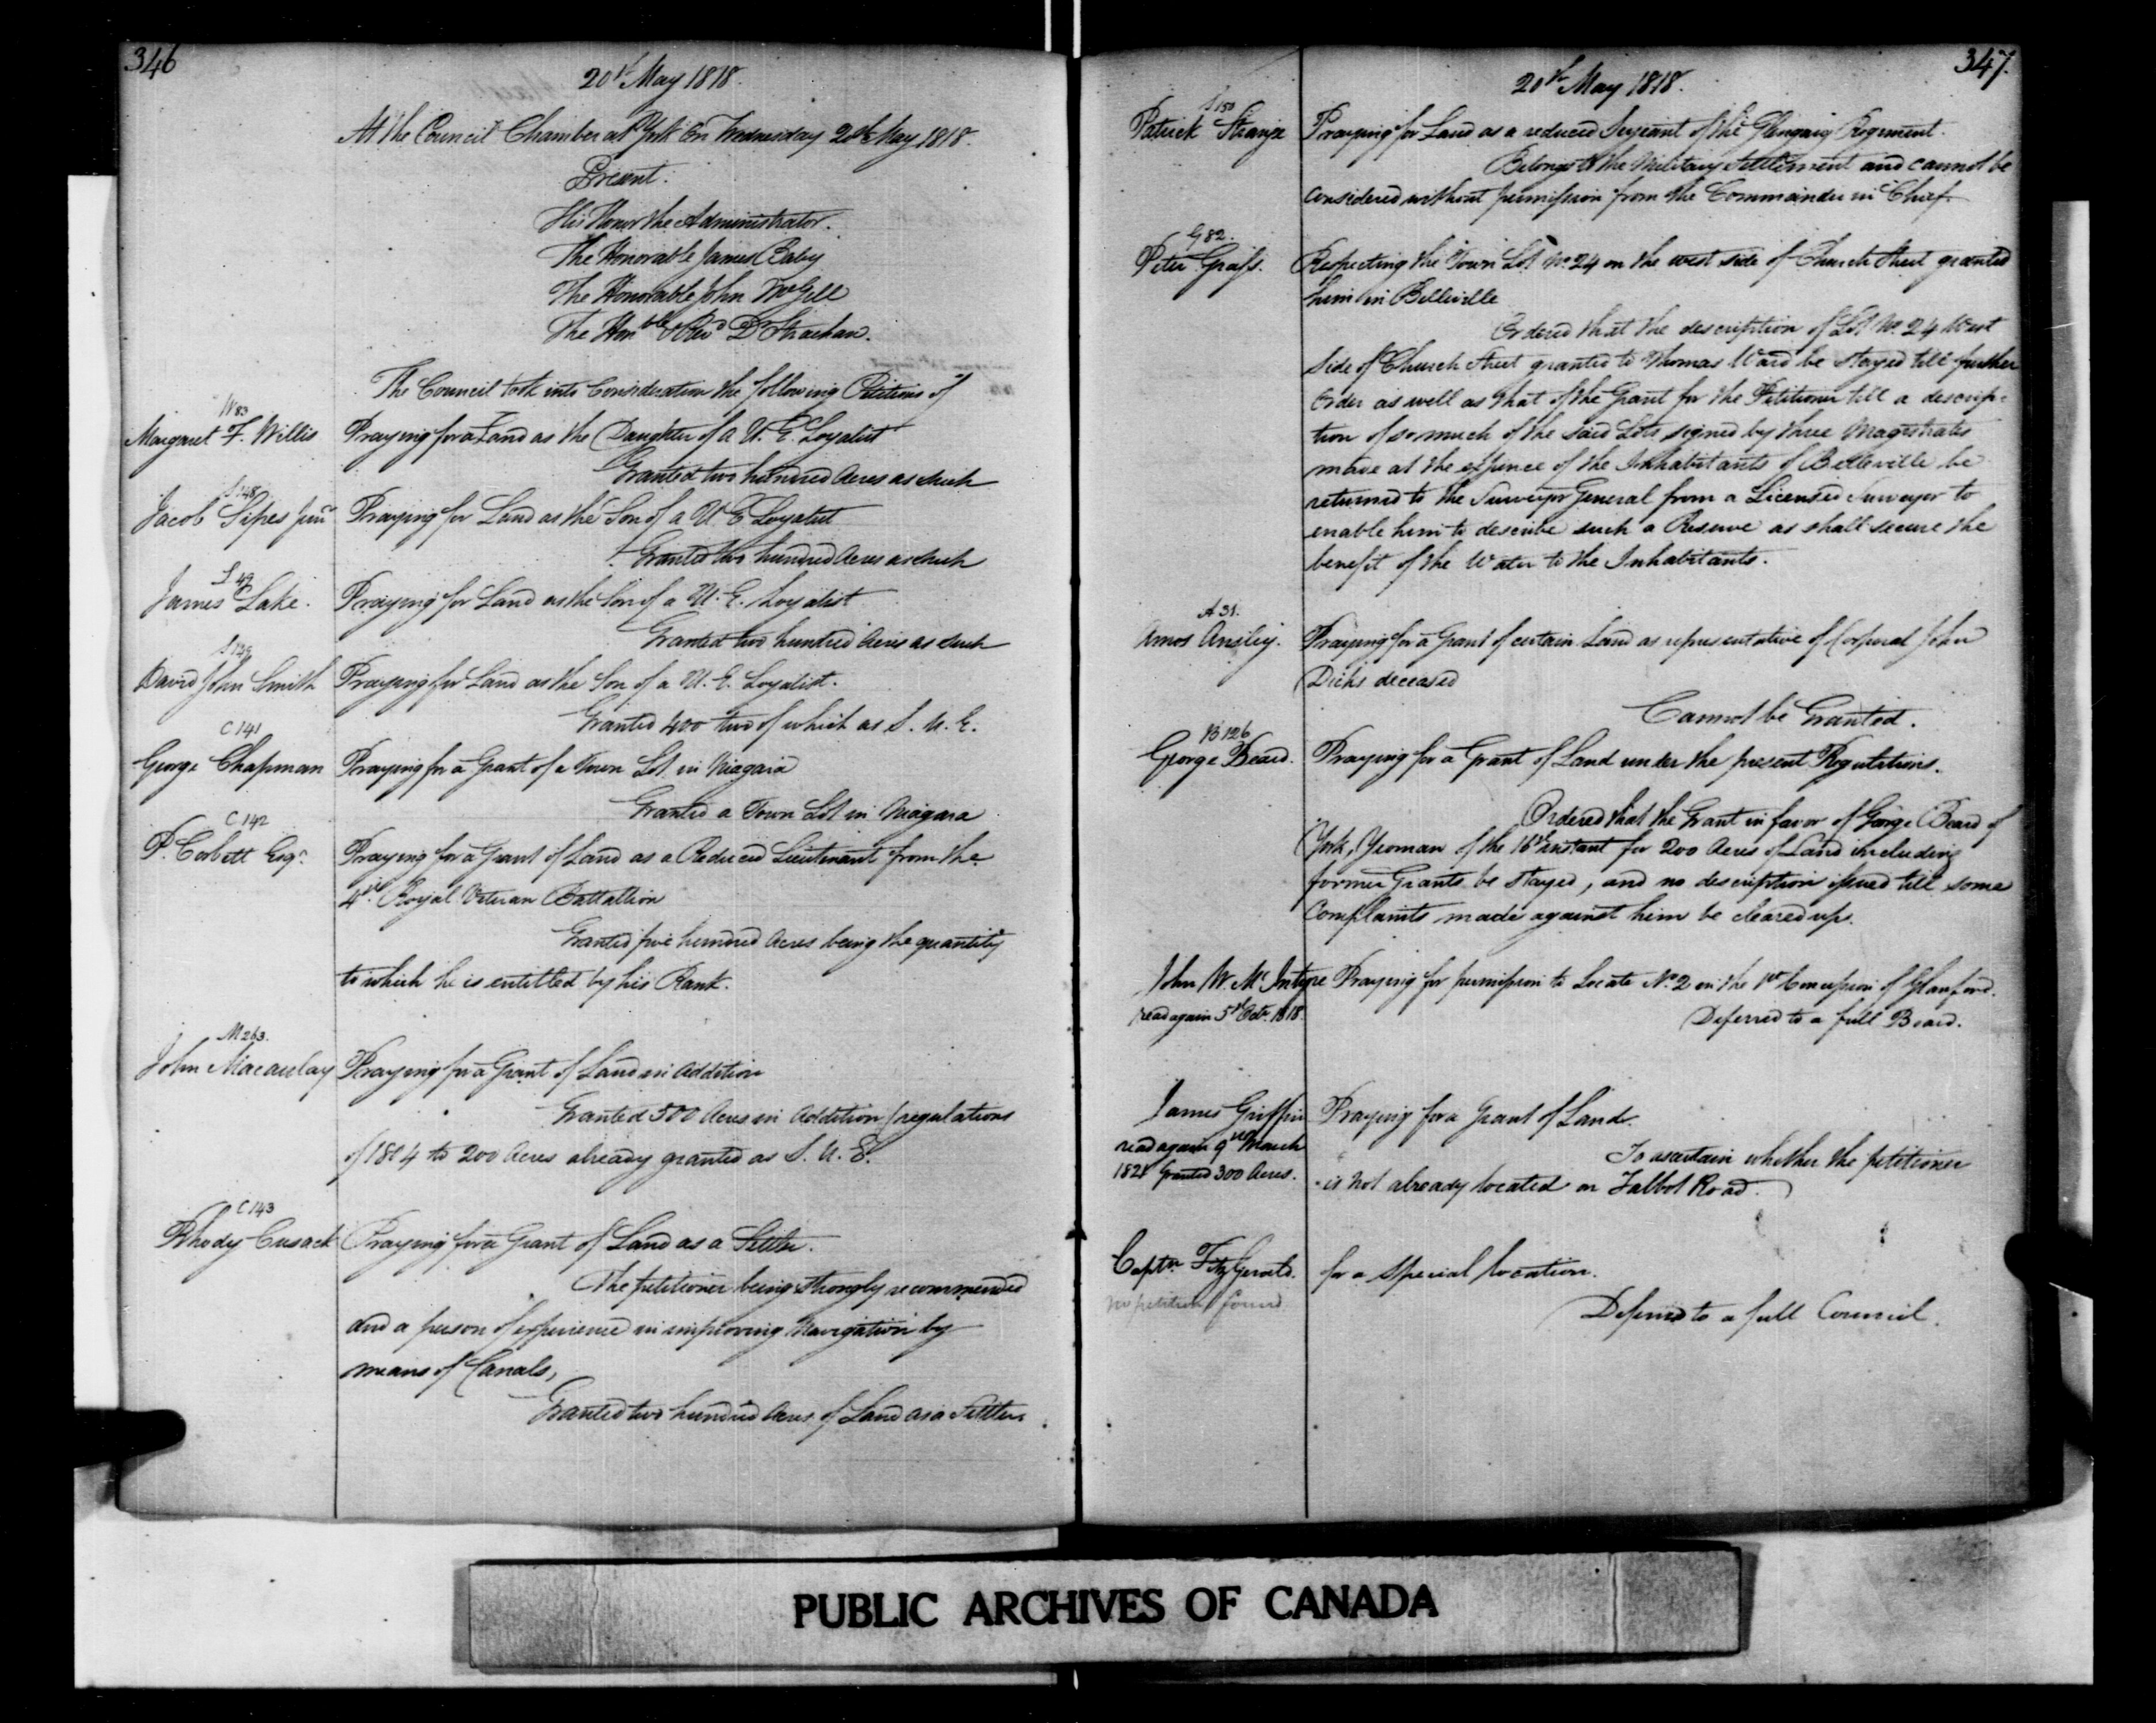 346
20th May 1818.
At the Council Chamber at York on Wednesday 20th May 1818.
Present.
His Honor the Administrator.
The Honorable James Baby
The Honorable John McGill
The Honble & Revd Dr Strachan.
The Council took into Consideration the following Petitions of
W83
Margaret F. Willis Praying for Land as the Daughter of a U. E. Loyalist
Granted two hundred Acres as such
S148
Jacob Sipes Junr Praying for Land as the Son of a U E Loyalist
Granted two hundred Acres as such
L 49
James Lake. Praying for Land as the Son of a U. E. Loyalist
Granted two hundred Acres as such
S149
David John Smith Praying for Land as the Son of a U. E. Loyalist.
Granted 400 two of which as S. U. E.
C 141
George Chapman Praying for a Grant of a Town Lot in Niagara
Granted a Town Lot in Niagara
C 142
P. Corbett Esqr. Praying for a Grant of Land as a Reduced Lieutenant from the
4th Royal Veteran Battallion
Granted five hundred Acres being the quantity
to which he is entitled by his Rank.
M263.
John Macaulay Praying for a Grant of Land in Addition
Granted 500 Acres in Addition / regulations
of 1804 to 200 Acres already granted as S. U. E.
C143
Rhody Cusack Praying for a Grant of Land as a Settler.
The petitioner being strongly recommended
and a person of experience in improving Navigation by
means of Canals,
Granted two hundred Acres of Land as a Settler.
347.
20th May 1818.
S150
Patrick Strange Praying for Land as a reduced Serjeant of the Glengary Regiment.
Belongs to the Military Settlement and cannot be
considered without permission from the Commander in Chief.
G82.
Peter Grass. Respecting the Town Lot No. 24 on the west side of Church Street granted
him in Belleville
Ordered that the description of Lot No. 24 West
side of Church Street granted to Thomas Ward be stayed till further
Order as well as that of the Grant for the Petitioner till a descrip-
tion of so much of the said Lots signed by three Magistrates
made at the expence of the Inhabitants of Belleville be
returned to the Surveyor General from a Licensed Surveyor to
enable him to describe such a Reserve as shall secure the
benefit of the Water to the Inhabitants.
A31.
Amos Ansley. Praying for a Grant of certain Land as representative of Corporal John
Dicks deceased
Cannot be Granted.
B126
George Beard. Praying for a Grant of Land under the present Regulations.
Ordered that the Grant in favor of George Beard of
York, Yeoman of the 16th instant for 200 Acres of Land including
former Grants be stayed, and no description issued till some
Complaints made against him be cleared up.
John W. McIntyre Praying for permission to Locate No. 2 in the 1st Concession of Glanford.
read again 5th Octr. 1818. Deferred to a full Board.
James Griffin Praying for a Grant of Land.
read again 9th March To ascertain whether the petitioner
1821 Granted 300 Acres. is not already located on Talbot Road.
Captn. FitzGerald. for a special location.
no petition found. Deferred to a full Council.
PUBLIC ARCHIVES OF CANADA